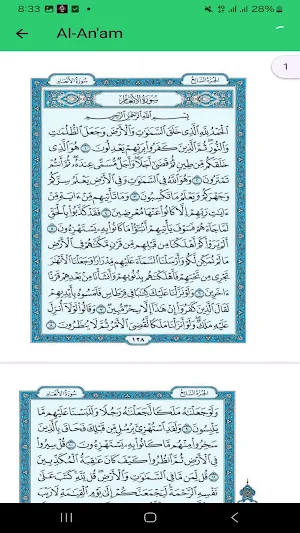 8:33 28%
Al-An'am
1
سُورَةُ الأَنْعَامِ الجُزْءُ السَّابِعُ
سُورَةُ الأَنْعَامِ
بِسْمِ اللَّهِ الرَّحْمَٰنِ الرَّحِيمِ
الْحَمْدُ لِلَّهِ الَّذِي خَلَقَ السَّمَٰوَٰتِ وَالْأَرْضَ وَجَعَلَ الظُّلُمَٰتِ
وَالنُّورَ ثُمَّ الَّذِينَ كَفَرُوا بِرَبِّهِمْ يَعْدِلُونَ ١ هُوَ الَّذِي
خَلَقَكُم مِّن طِينٍ ثُمَّ قَضَىٰ أَجَلًا وَأَجَلٌ مُّسَمًّى عِندَهُ ثُمَّ أَنتُمْ
تَمْتَرُونَ ٢ وَهُوَ اللَّهُ فِي السَّمَٰوَٰتِ وَفِي الْأَرْضِ يَعْلَمُ سِرَّكُمْ
وَجَهْرَكُمْ وَيَعْلَمُ مَا تَكْسِبُونَ ٣ وَمَا تَأْتِيهِم مِّنْ ءَايَةٍ مِّنْ
ءَايَٰتِ رَبِّهِمْ إِلَّا كَانُوا عَنْهَا مُعْرِضِينَ ٤ فَقَدْ كَذَّبُوا بِالْحَقِّ
لَمَّا جَاءَهُمْ فَسَوْفَ يَأْتِيهِمْ أَنبَٰٓؤُا مَا كَانُوا بِهِ يَسْتَهْزِءُونَ ٥
أَلَمْ يَرَوْا كَمْ أَهْلَكْنَا مِن قَبْلِهِم مِّن قَرْنٍ مَّكَّنَّٰهُمْ فِي الْأَرْضِ
مَا لَمْ نُمَكِّن لَّكُمْ وَأَرْسَلْنَا السَّمَاءَ عَلَيْهِم مِّدْرَارًا وَجَعَلْنَا الْأَنْهَٰرَ
تَجْرِي مِن تَحْتِهِمْ فَأَهْلَكْنَٰهُم بِذُنُوبِهِمْ وَأَنشَأْنَا مِن بَعْدِهِمْ قَرْنًا
ءَاخَرِينَ ٦ وَلَوْ نَزَّلْنَا عَلَيْكَ كِتَٰبًا فِي قِرْطَاسٍ فَلَمَسُوهُ بِأَيْدِيهِمْ
لَقَالَ الَّذِينَ كَفَرُوا إِنْ هَٰذَا إِلَّا سِحْرٌ مُّبِينٌ ٧ وَقَالُوا لَوْلَا أُنزِلَ
عَلَيْهِ مَلَكٌ وَلَوْ أَنزَلْنَا مَلَكًا لَّقُضِيَ الْأَمْرُ ثُمَّ لَا يُنظَرُونَ ٨
١٢٨
سُورَةُ الأَنْعَامِ الجُزْءُ السَّابِعُ
وَلَوْ جَعَلْنَٰهُ مَلَكًا لَّجَعَلْنَٰهُ رَجُلًا وَلَلَبَسْنَا عَلَيْهِم مَّا
يَلْبِسُونَ ٩ وَلَقَدِ اسْتُهْزِئَ بِرُسُلٍ مِّن قَبْلِكَ فَحَاقَ بِالَّذِينَ
سَخِرُوا مِنْهُم مَّا كَانُوا بِهِ يَسْتَهْزِءُونَ ١٠ قُلْ سِيرُوا
فِي الْأَرْضِ ثُمَّ انظُرُوا كَيْفَ كَانَ عَٰقِبَةُ الْمُكَذِّبِينَ
١١ قُل لِّمَن مَّا فِي السَّمَٰوَٰتِ وَالْأَرْضِ قُل لِّلَّهِ كَتَبَ عَلَىٰ
نَفْسِهِ الرَّحْمَةَ لَيَجْمَعَنَّكُمْ إِلَىٰ يَوْمِ الْقِيَٰمَةِ لَا رَيْبَ